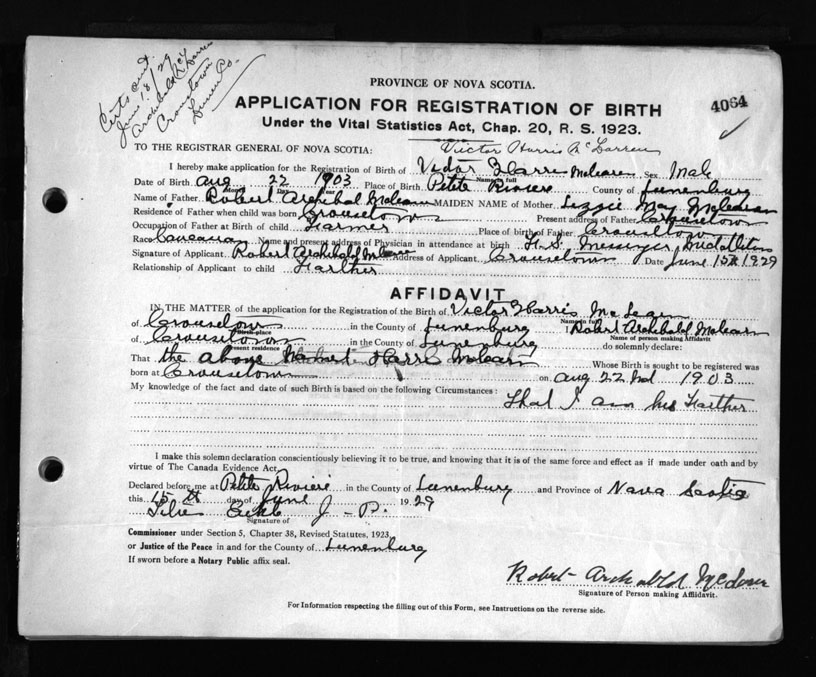 Certs sent
June 18/29
Archibald Mc
Crousetown
Lunen Co.
PROVINCE OF NOVA SCOTIA.
4064
APPLICATION FOR REGISTRATION OF BIRTH
Under the Vital Statistics Act, Chap. 20, R. S. 1923.
Victor Harris McLarren
TO THE REGISTRAR GENERAL OF NOVA SCOTIA:
I hereby make application for the Registration of Birth of Victor Harris Mclearn Sex Male
Name in full
Date of Birth Aug 22 1903 Place of Birth Petite Riviere County of Lunenburg
Month Day Year
Name of Father Robert Archibal Mclearn MAIDEN NAME of Mother Lizzie May Mclearn
Residence of Father when child was born Crousetown Present address of Father Crousetown
Occupation of Father at Birth of Child Farmer Place of birth of Father Crousetown
Race Name and present address of Physician in attendance at birth H. S. Messinger
Signature of Applicant Robert Archibald Address of Applicant Crousetown Date June 15th 1929
Relationship of Applicant to child Farther
AFFIDAVIT
IN THE MATTER of the application for the Registration of the Birth of Victor Harris McLearn
Name in full
of Crousetown in the County of Lunenburg I Robert Archibald Mclearn
Birth-place Name of person making Affidavit
of Crousetown in the County of Lunenburg do solemnly declare:
Present residence
That the above Harris Mclearn Whose Birth is sought to be registered was
born at Crousetown on Aug 22nd 1903
My knowledge of the fact and date of such Birth is based on the following Circumstances:
That I am his Farther
I make this solemn declaration conscientiously believing it to be true, and knowing that it is of the same force and effect as if made under oath and by
virtue of The Canada Evidence Act.
Declared before me at Petite Riviere in the County of Lunenburg and Province of Nova Scotia
this 15th day of June 1929
J - P.
Signature of
Commissioner under Section 5, Chapter 38, Revised Statutes, 1923.
or Justice of the Peace in and for the County of Lunenburg
If sworn before a Notary Public affix seal.
Robert Archibald
Signature of Person making Affidavit.
For Information respecting the filling out of this Form, see Instructions on the reverse side.